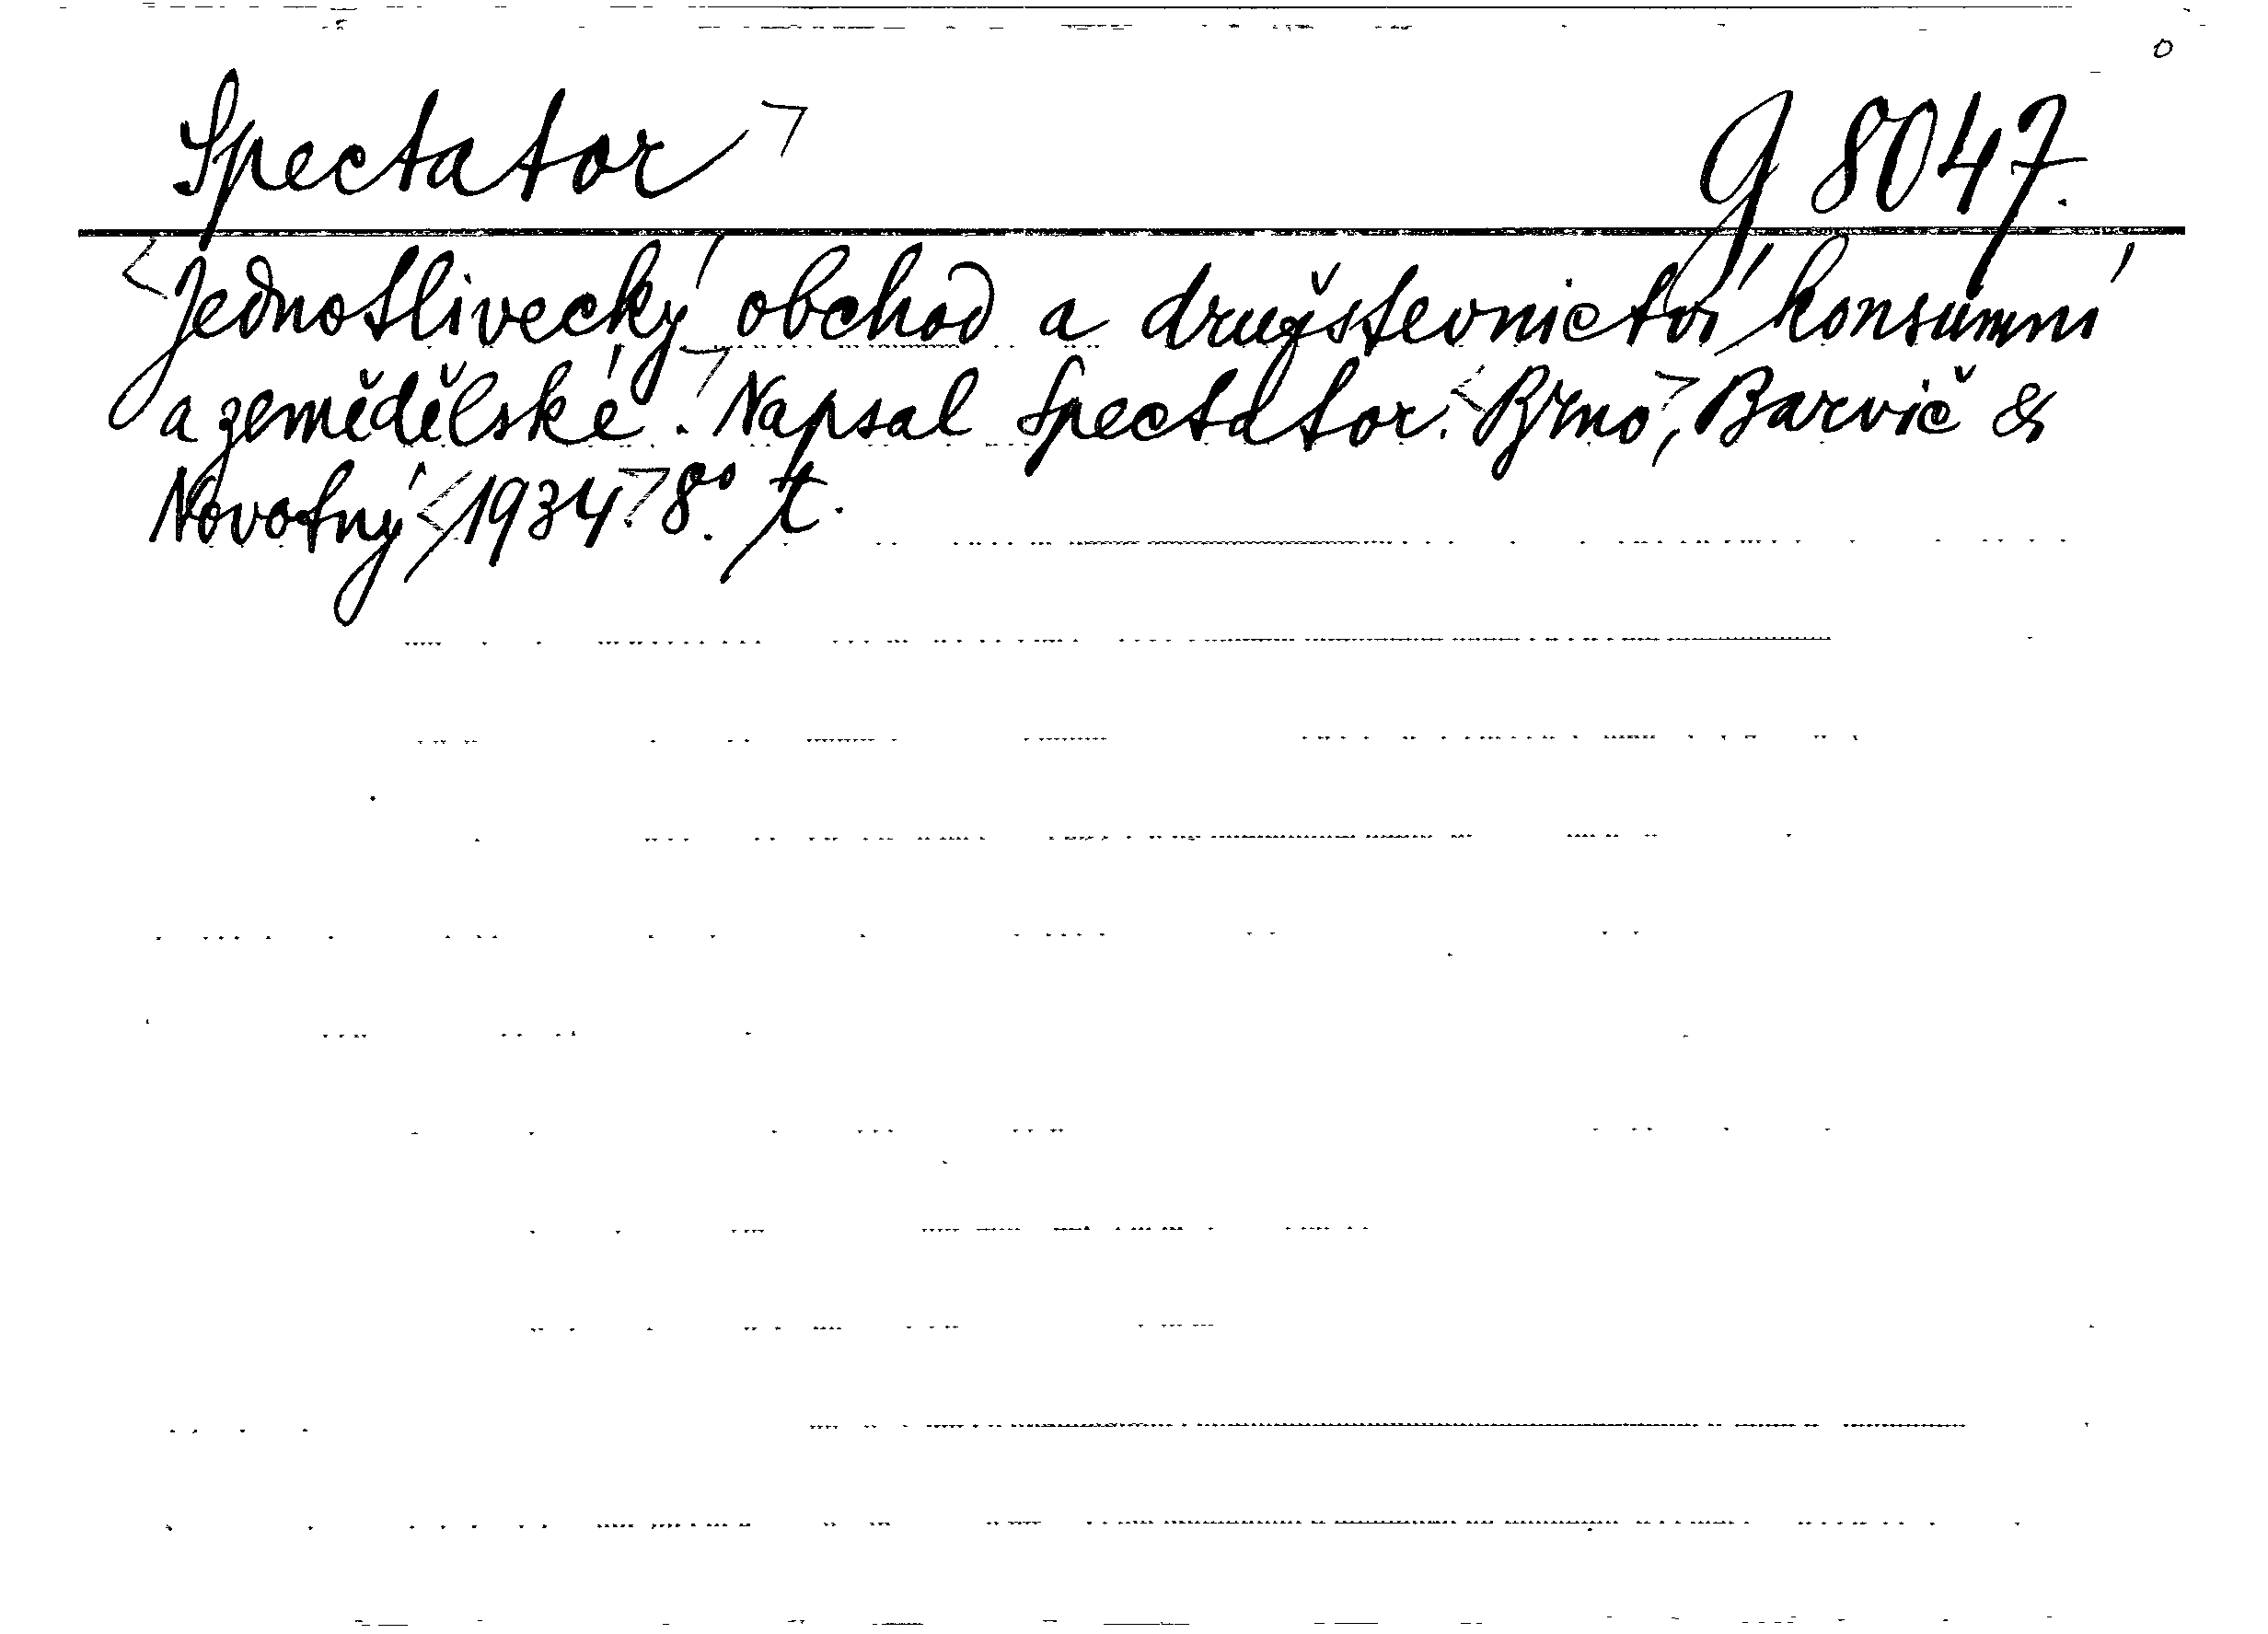 Spectator g 8047.
Jednotlivecký obchod a družstevnictví konsumní
a zemědělské. Napsal Spectator. Brno, Barvič &
Novotný, 1934. 8°. t.